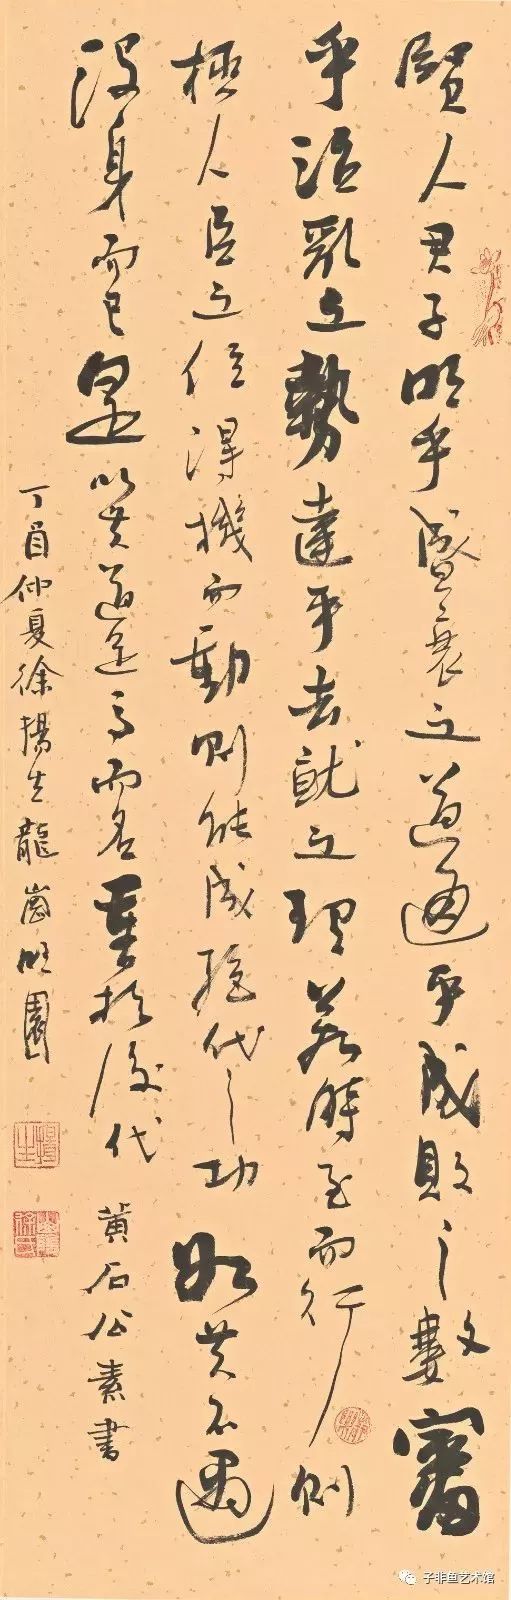 賢人君子明乎盛衰之道通乎成敗之數審
乎治亂之勢達乎去就之理若時至而行則
極人臣之位得機而動則能成絕代之功如其不遇
沒身而已是以其道足高而名重於後代 黃石公素書
丁酉仲夏徐揚生龍崗明園
子非鱼艺术馆